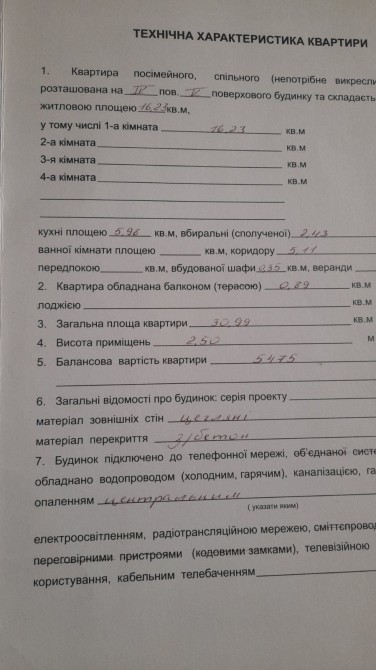 ТЕХНІЧНА ХАРАКТЕРИСТИКА КВАРТИРИ
1. Квартира посімейного, спільного (непотрібне викресли
розташована на IV пов. V поверхового будинку та складаєть
житловою площею 16,23 кв.м,
у тому числі 1-а кімната 16,23 кв.м
2-а кімната кв.м
3-я кімната кв.м
4-а кімната кв.м
кухні площею 5,96 кв.м, вбиральні (сполученої) 2,43
ванної кімнати площею кв.м, коридору 5,11
передпокою кв.м, вбудованої шафи 0,35 кв.м, веранди
2. Квартира обладнана балконом (терасою) 0,89 кв.м
лоджією кв.м
3. Загальна площа квартири 30,99 кв.м
4. Висота приміщень 2,50 м
5. Балансова вартість квартири 5475
6. Загальні відомості про будинок: серія проекту
матеріал зовнішніх стін цегляні
матеріал перекриття з/бетон
7. Будинок підключено до телефонної мережі, об'єднаної систе
обладнано водопроводом (холодним, гарячим), каналізацією, га
опаленням центральним
( указати яким)
електроосвітленням, радіотрансляційною мережею, сміттєпровод
переговірними пристроями (кодовими замками), телевізійною
користування, кабельним телебаченням